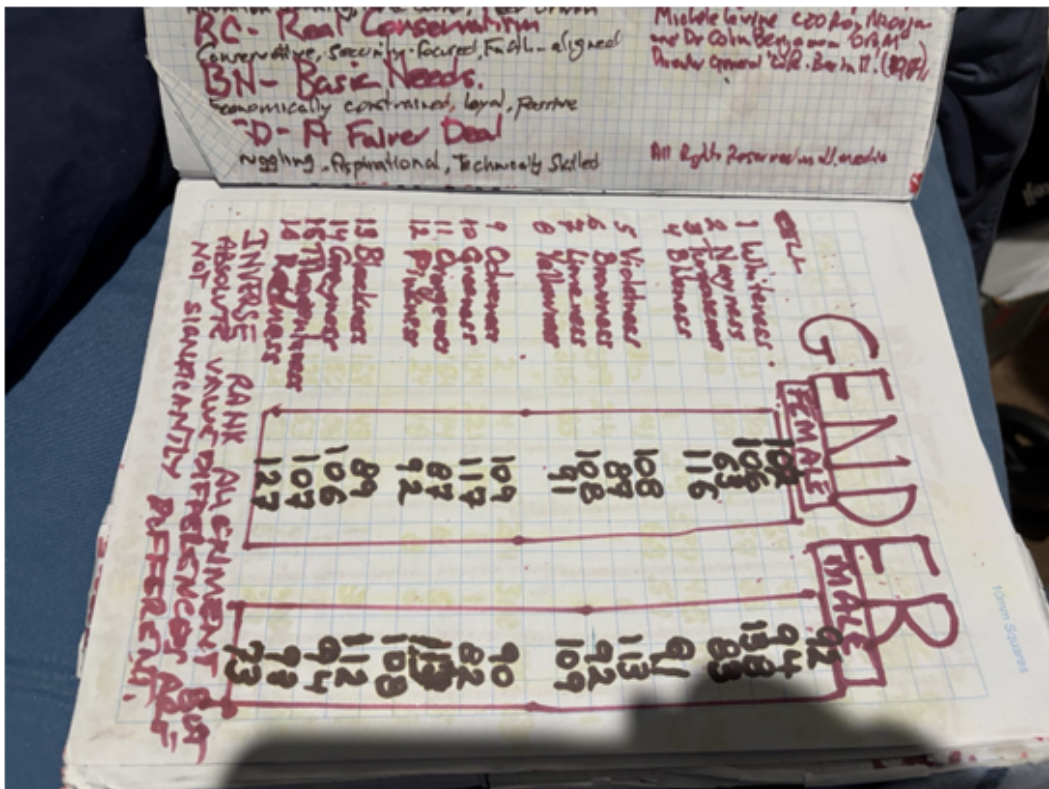 RC- Real Conservatism
Conservative, Security-focused, Faith-aligned
BN- Basic Needs.
Economically constrained, Loyal, Passive
D- A Fairer Deal
ruggling, Aspirational, Technically Skilled
Michele Levine CEO Roy Morgan
and Dr Colin Benjamin OAM
Director General
All Rights Reserved in all media
GENDER
FEMALE MALE
1 Whiteness. 92
2 Navyness 106 94
3 63 138
4 Blueness 116 83
5 Violetness 108 91
6 Brownness 87 113
7 Limeness 108 92
8 Yellowness 91 109
9 Ochreness 109 90
10 Greenness 117 82
11 Orangeness 87
12 Pinkness 92 108
13 Blackness 89 112
14 Greyness 106 94
15 107 97
16 Redness 127 73
INVERSE RANK ALIGNMENT BUT
ABSOLUTE VALUE DIFFERENCES ARE
NOT SIGNIFICANTLY DIFFERENT.
10mm Squares